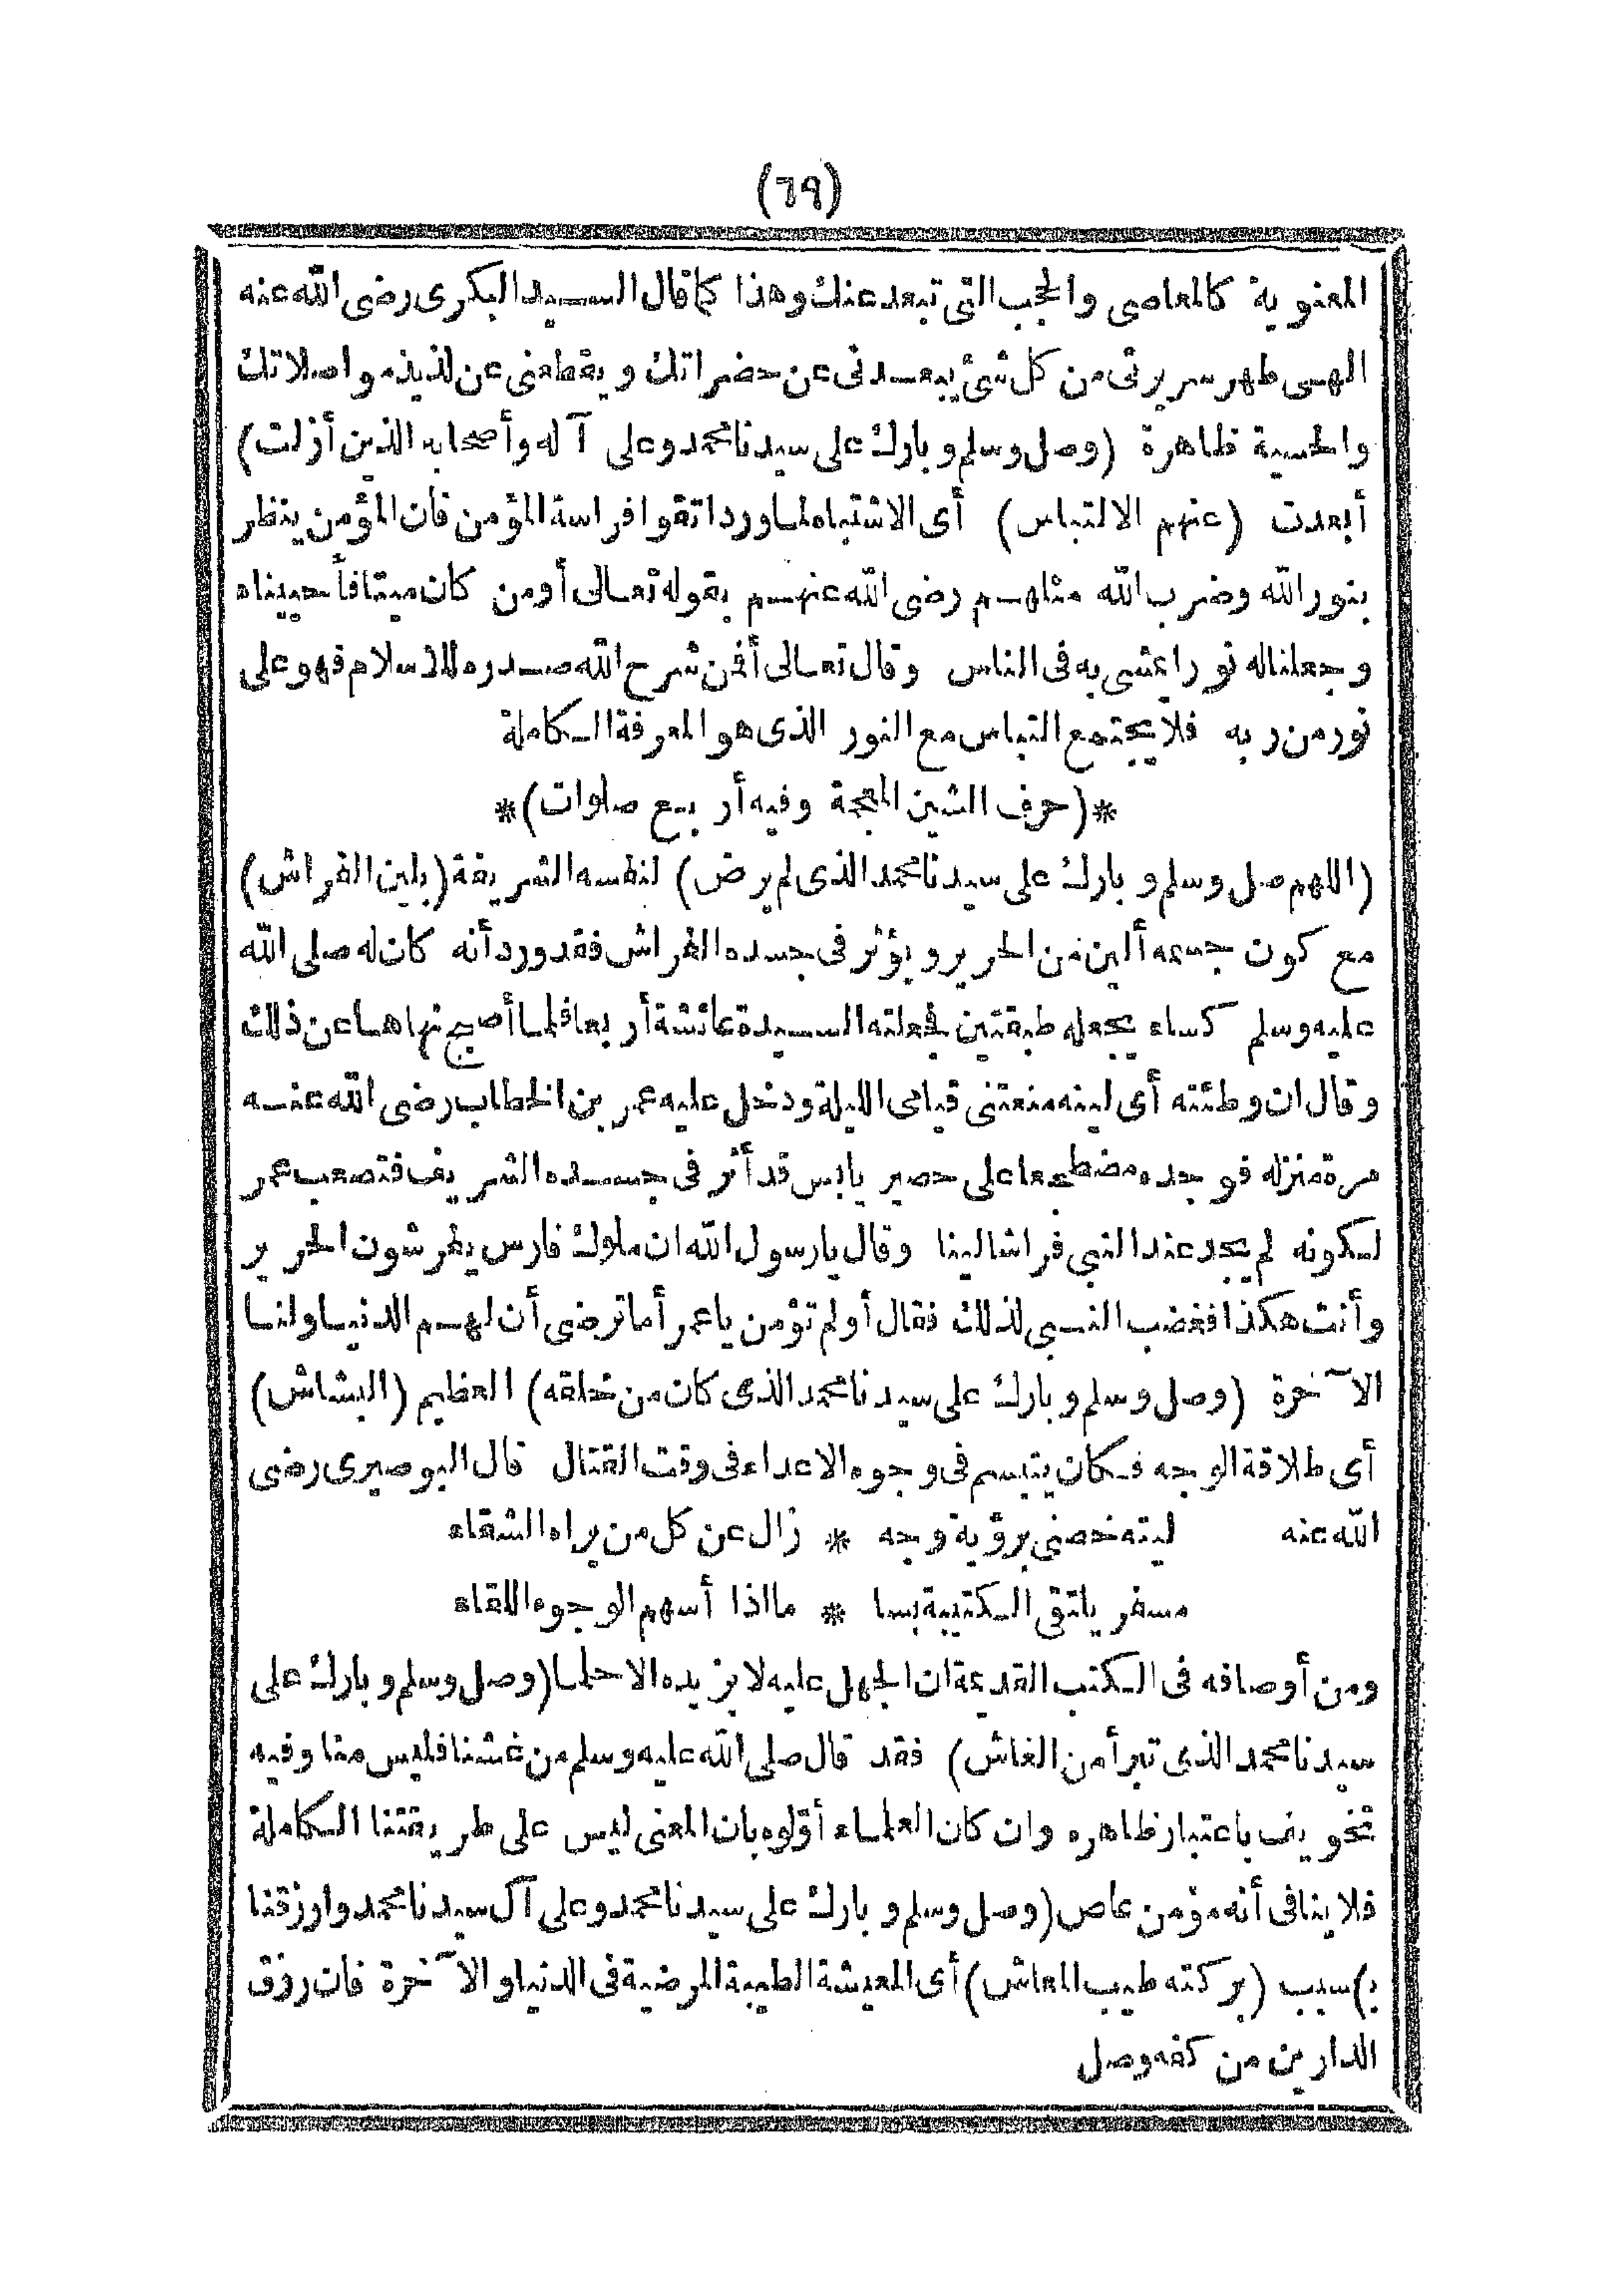 (٦٩)
المعنوية كالمعاصى والحجب التى تبعد عنك وهذا كما قال السيد البكرى رضى الله عنه
الهى طهر سريرتى من كل شئ يبعدنى عن حضراتك ويقطعنى عن لذيذ مواصلاتك
والحسية ظاهرة (وصل وسلم وبارك على سيدنا محمد وعلى آله وأصحابه الذين أزلت)
أبعدت (عنهم الالتباس) أى الاشتباه لما ورد اتقوا فراسة المؤمن فان المؤمن ينظر
بنور الله وضرب الله مثلهم رضى الله عنهم بقوله تعالى أومن كان ميتا فأحييناه
وجعلنا له نورا يمشى به فى الناس وقال تعالى أفمن شرح الله صدره للاسلام فهو على
نور من ربه فلا يجتمع التباس مع النور الذى هو المعرفة الكاملة
*(حرف الشين المعجمة وفيه أربع صلوات)*
(اللهم صل وسلم وبارك على سيدنا محمد الذى لم يرض) لنفسه الشريفة (بلين الفراش)
مع كون جسمه ألين من الحرير ويؤثر فى جسده الفراش فقد ورد أنه كان له صلى الله
عليه وسلم كساء يجعله طبقتين فجعلته السيدة عائشة أربعا فلما أصبح نهاها عن ذلك
وقال ان وطئته أى لينه منعتنى قيامى الليلة ودخل عليه عمر بن الخطاب رضى الله عنه
مرة منزله فوجده مضطجعا على حصير يابس قد أثر فى جسده الشريف فتصعب عمر
لكونه لم يجد عند النبى فراشا لينا وقال يارسول الله ان ملوك فارس يفرشون الحرير
وأنت هكذا فغضب النبى لذلك فقال أولم تؤمن ياعمر أما ترضى أن لهم الدنيا ولنا
الآخرة (وصل وسلم وبارك على سيدنا محمد الذى كان من خلقه) العظيم (البشاش)
أى طلاقة الوجه فكان يتبسم فى وجوه الاعداء فى وقت القتال قال البوصيرى رضى
الله عنه ليته خصنى برؤية وجه * زال عن كل من يراه الشقاء
مسفر يلتقى الكتيبة بسا * ما اذا أسهم الوجوه اللقاء
ومن أوصافه فى الكتب القديمة ان الجهل عليه لا يزيده الا حلما (وصل وسلم وبارك على
سيدنا محمد الذى تبرأ من الغاش) فقد قال صلى الله عليه وسلم من غشنا فليس منا وفيه
تخويف باعتبار ظاهره وان كان العلماء أوّلوه بان المعنى ليس على طريقتنا الكاملة
فلا ينافى أنه مؤمن عاص (وصل وسلم وبارك على سيدنا محمد وعلى آل سيدنا محمد وارزقنا
ب)سبب (بركته طيب المعاش) أى المعيشة الطيبة المرضية فى الدنيا والآخرة فان رزق
الدارين من كفه وصل